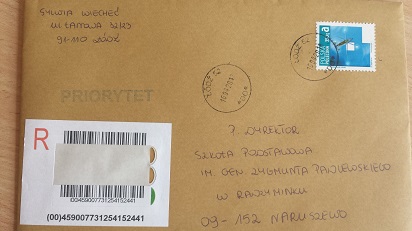 SYLWIA WIECHEĆ
UL. ŁANOWA
91-110 ŁÓDŹ
PRIORYTET
R
(00)459007731254152441
(00)459007731254152441
P. DYREKTOR
SZKOŁA PODSTAWOWA
IM. GEN. ZYGMUNTA PADLEWSKIEGO
W RADZYMINKU
09-152 NARUSZEWO